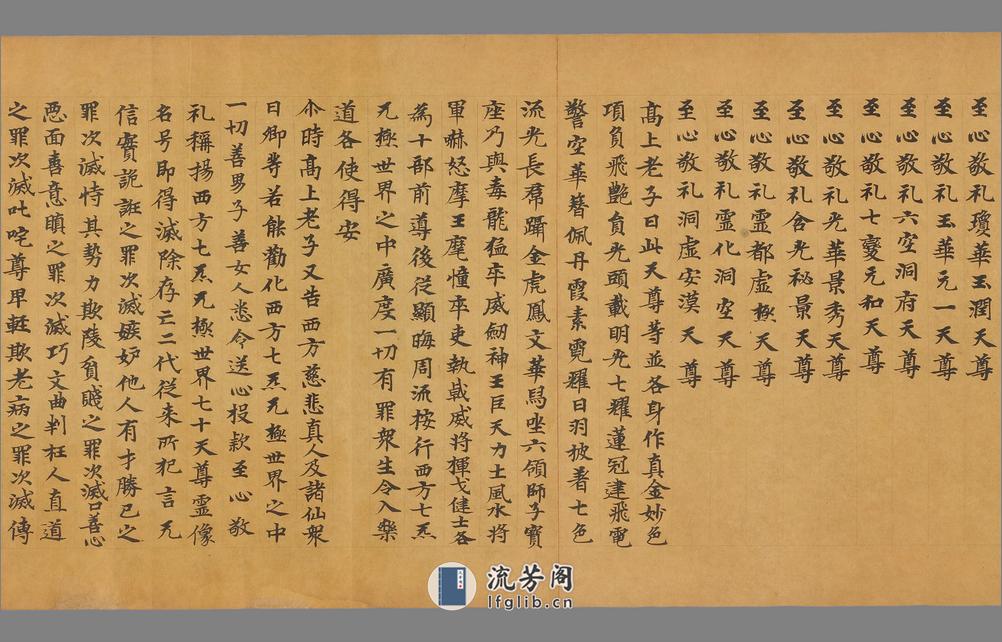 至心敬礼瓊華玉潤天尊
至心敬礼玉華元一天尊
至心敬礼六空洞府天尊
至心敬礼七變元和天尊
至心敬礼光華景秀天尊
至心敬礼含光秘景天尊
至心敬礼靈都虛極天尊
至心敬礼靈化洞空天尊
至心敬礼洞虛安漠天尊
髙上老子曰此天尊等並各身作真金妙色
項負飛艷負光頭載明光七耀蓮冠建飛電
警空華簪佩丹霞素霓耀日羽披著七色
流光長帬躡金虎鳳文華舄坐六領師子寳
座乃與毒龍猛卒威劒神王巨天力士風水將
軍嚇怒摩王麾幢卒吏執戟威將揮戈健士各
為十部前導後從顯晦周流桉行西方七炁
无極世界之中廣度一切有罪衆生令入樂
道各使得安
尒時髙上老子又告西方慈悲真人及諸仙衆
曰卿等若能勸化西方七炁无極世界之中
一切善男子善女人悉令送心投款至心敬
礼稱揚西方七炁无極世界七十天尊靈像
名号即得滅除存亡二代從来所犯言无
信實詭誑之罪次滅嫉妬他人有才勝己之
罪次滅恃其勢力欺陵貧賤之罪次滅口善心
惡面喜意瞋之罪次滅巧文曲判枉人直道
之罪次滅吐咤尊卑輕欺老病之罪次滅傳
流芳阁
lfglib.cn